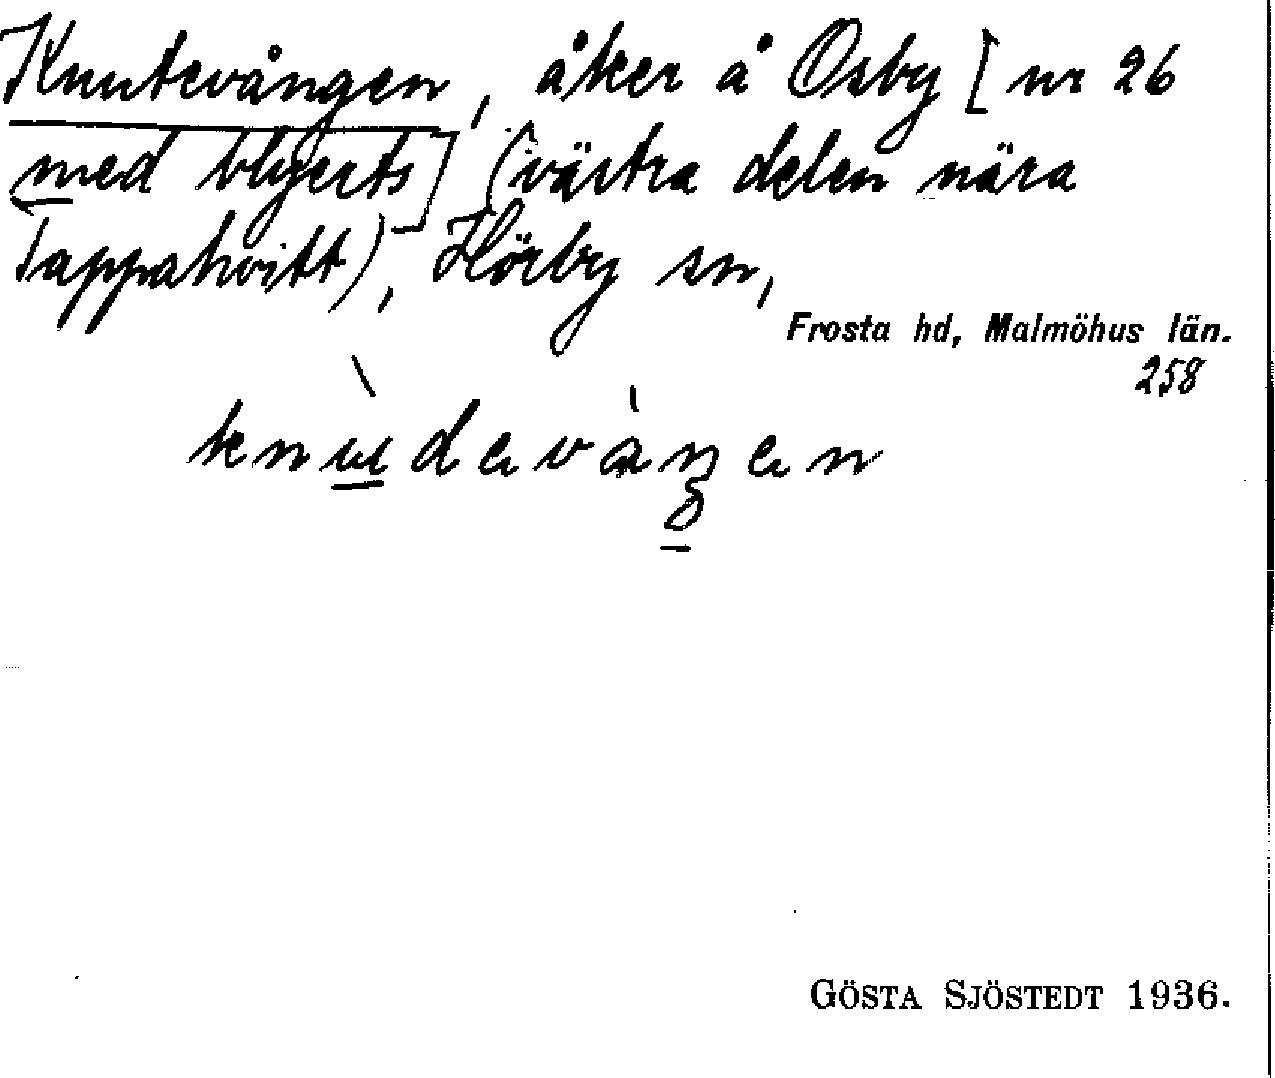 Knutevången, åker å Osby [nr 26
med blyerts] (västra delen nära
Tappahvitt), Hörby sn,
Frosta hd, Malmöhus län.
258
knu̲devàŋen
GÖSTA SJÖSTEDT 1936.